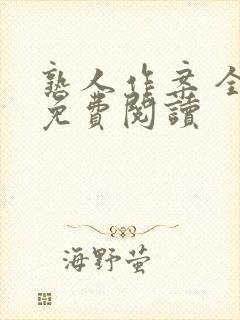 熟人作案全
免費閱讀
海野萤